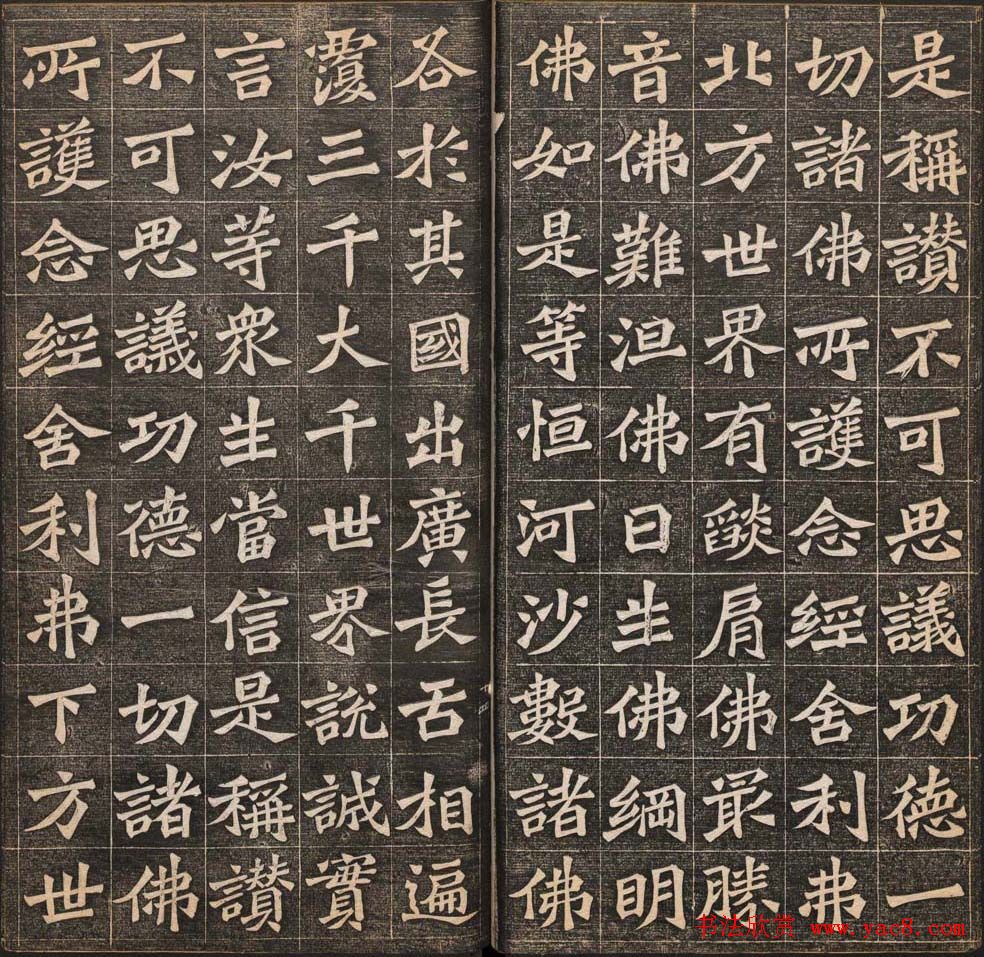 是稱讃不可思議功德一
切諸佛所護念經舍利弗
北方世界有燄肩佛最勝
音佛難沮佛日生佛網明
佛如是等恒河沙數諸佛
各於其國出廣長舌相遍
覆三千大千世界說誠實
言汝等衆生當信是稱讃
不可思議功德一切諸佛
所護念經舍利弗下方世
书法欣赏 www.yac8.com